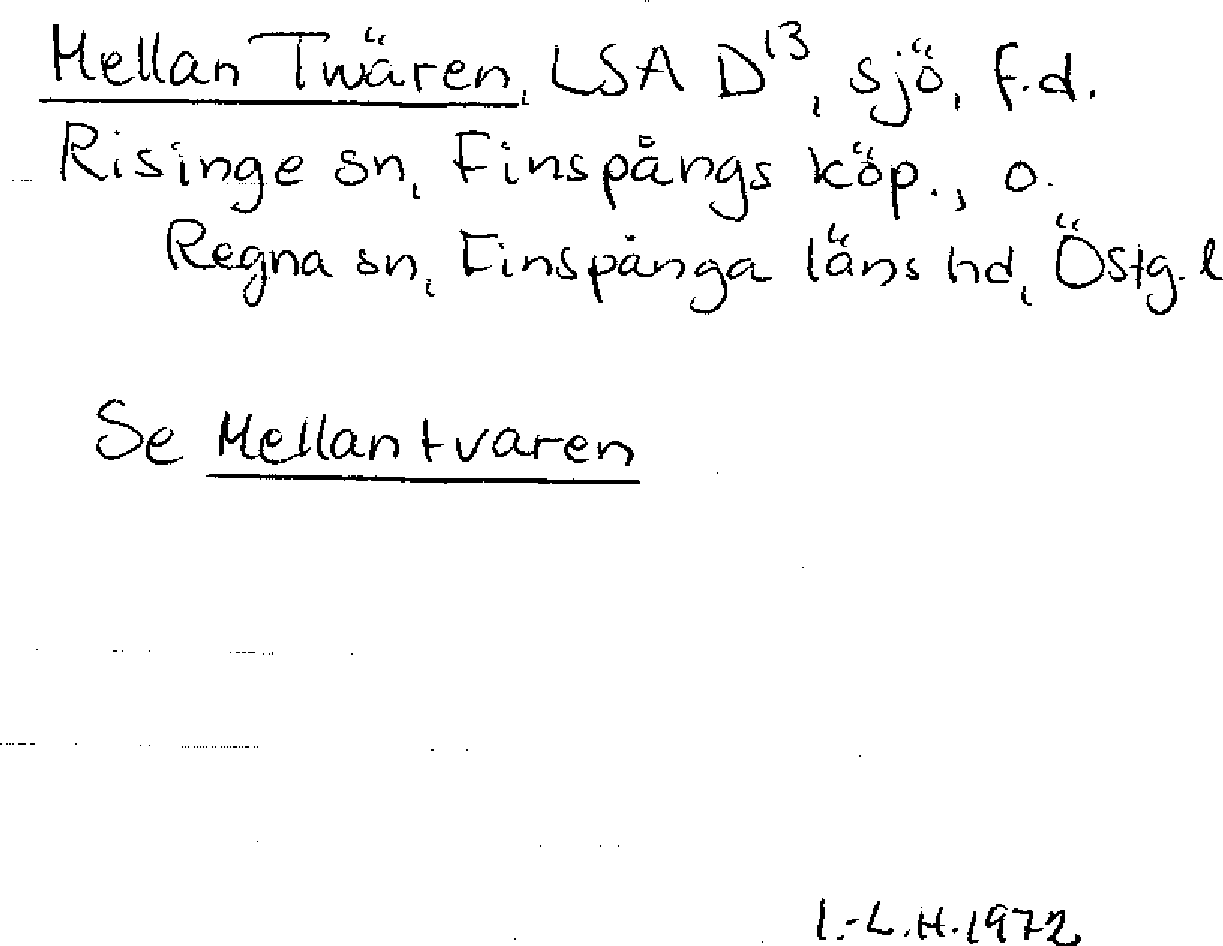 Mellan Twären, LSA D¹³, sjö, f.d.
Risinge sn, Finspångs köp., o.
Regna sn, Finspånga läns hd, Östg. l
Se Mellantvaren
I.-L.H. 1972